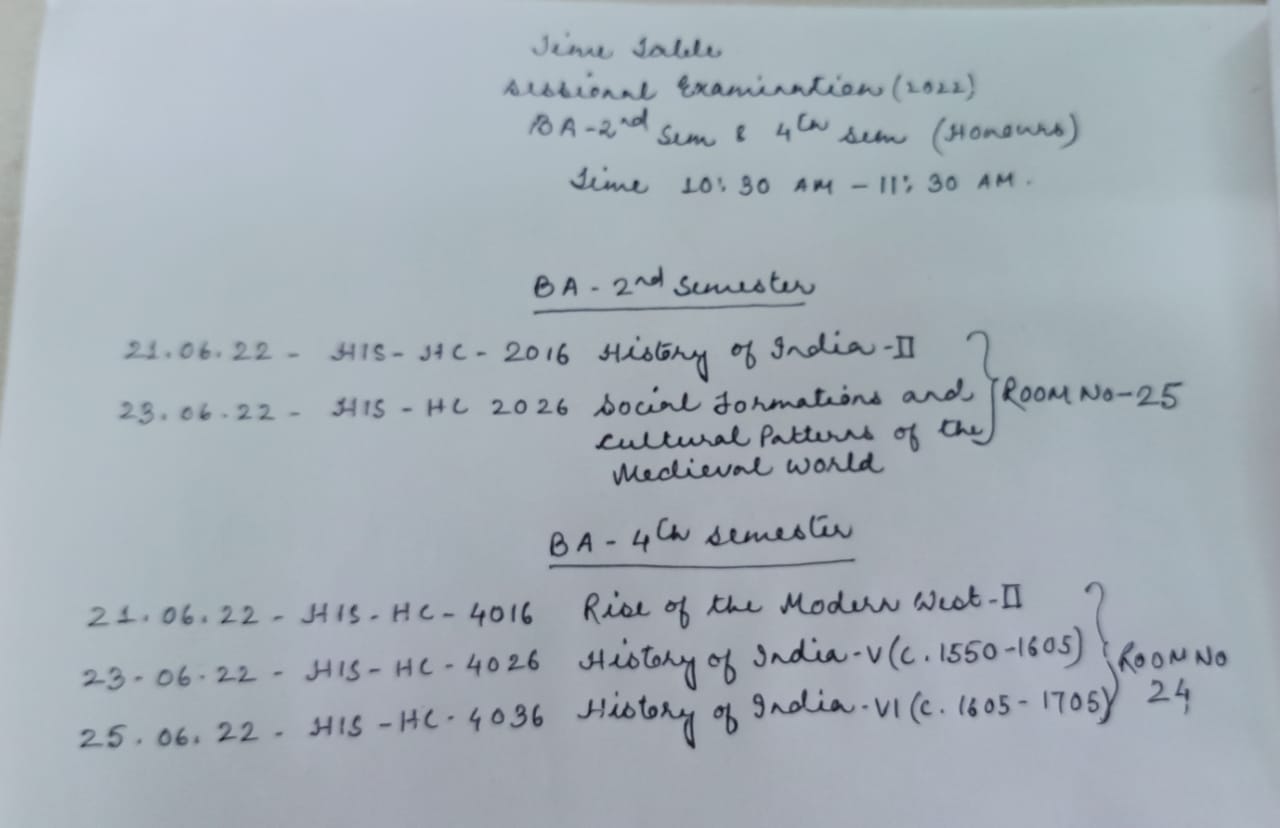 Time Table
Sessional Examination (2022)
BA-2nd Sem & 4th Sem (Honours)
Time 10:30 AM – 11:30 AM.
BA - 2nd Semester
21.06.22 - HIS-HC-2016 History of India-II
23.06.22 - HIS-HC 2026 Social Formations and
Cultural Patterns of the
Medieval World
ROOM NO-25
BA - 4th Semester
21.06.22 - HIS-HC-4016 Rise of the Modern West-II
23-06-22 - HIS-HC-4026 History of India-V (c. 1550-1605)
25.06.22 - HIS-HC-4036 History of India-VI (c. 1605-1705)
ROOM NO
24